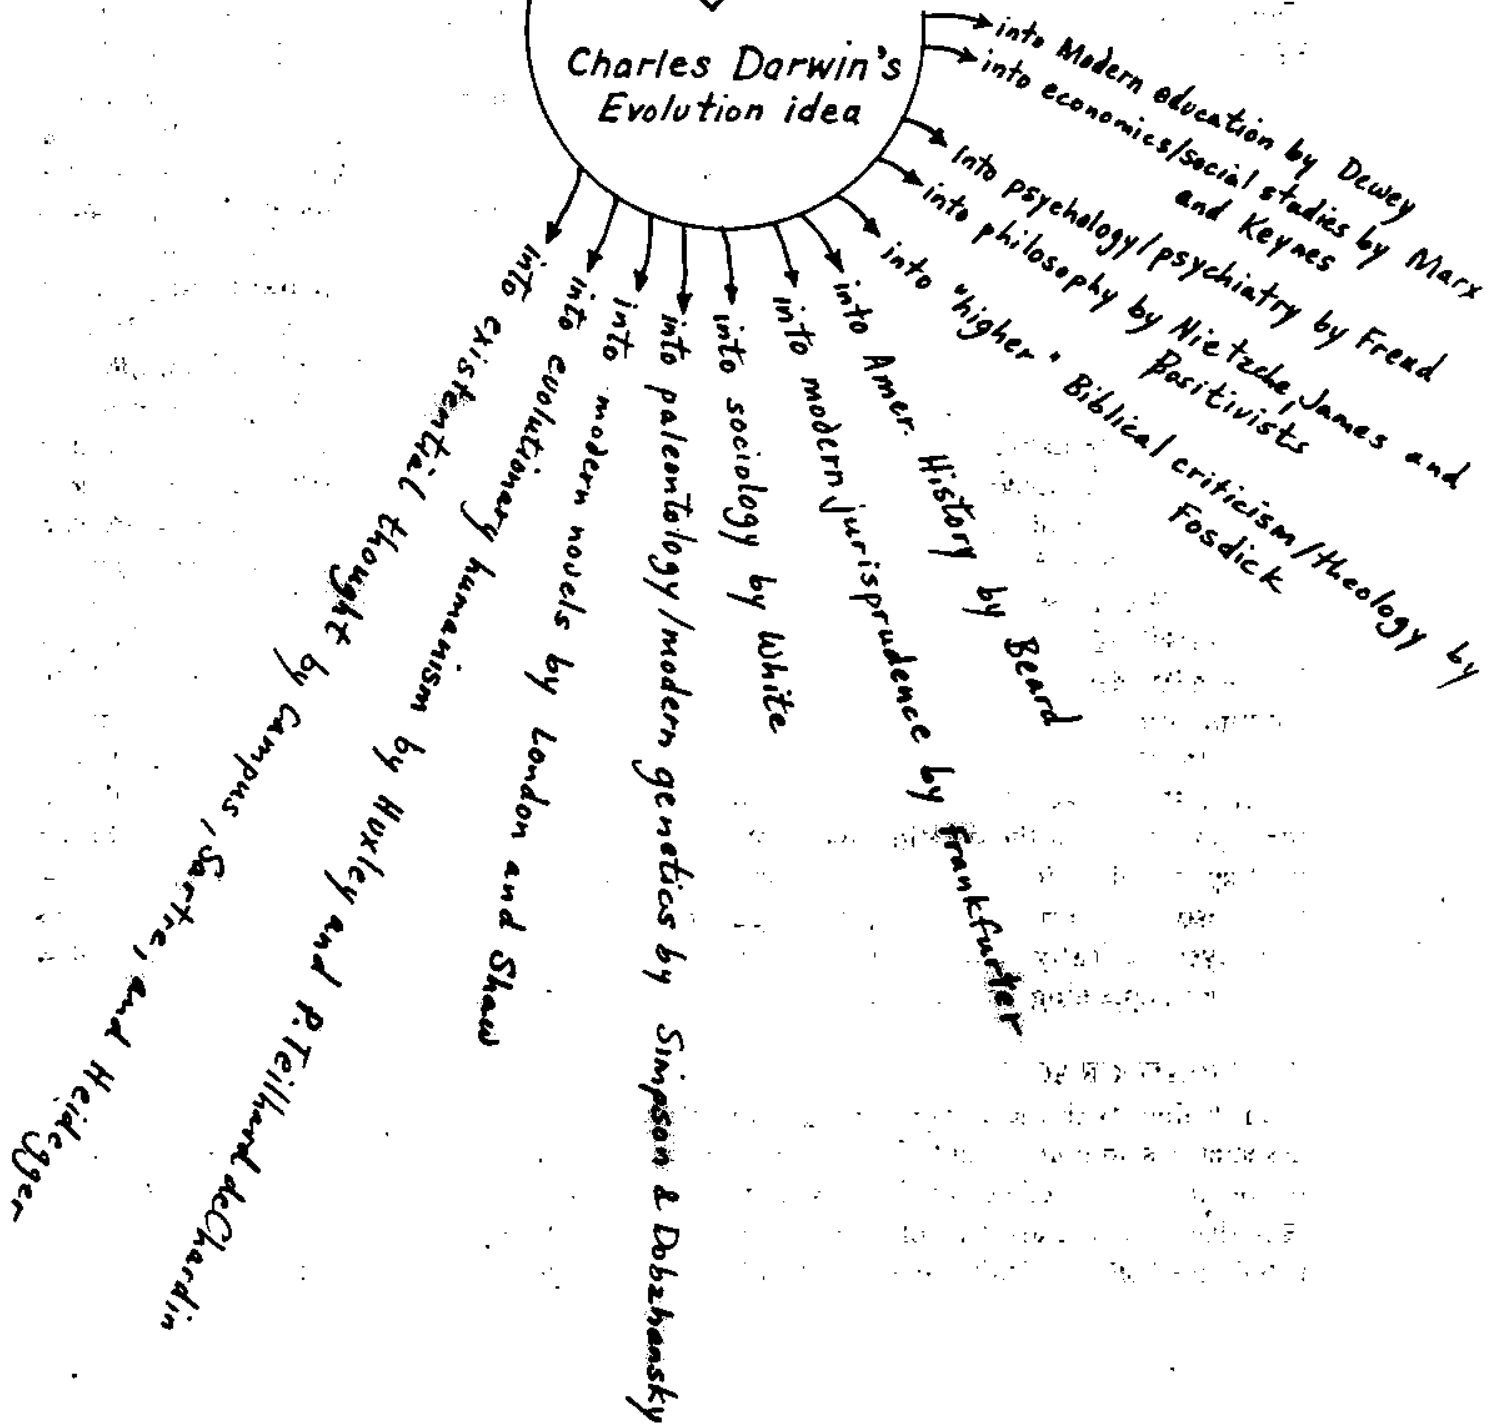 Charles Darwin's
Evolution idea
into Modern education by Dewey
into economics/social studies by Marx
and Keynes
Into psychology/psychiatry by Freud
into philosophy by Nietzche, James and
Positivists
into "higher" Biblical criticism/theology by
Fosdick
into Amer. History by Beard
into modern jurisprudence by Frankfurter
into sociology by White
into paleontology/modern genetics by Simpson & Dobzhansky
into modern novels by London and Shaw
into evolutionary humanism by Huxley and P. Teilhard deChardin
into existential thought by Campus, Sartre, and Heidegger